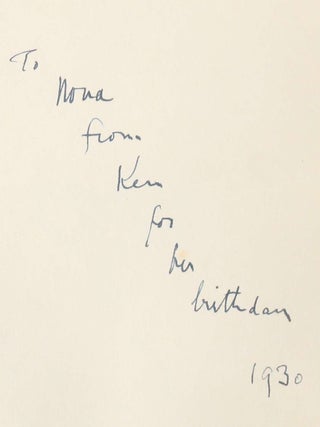 To
Nona
from
Ken
for
her
birthday
1930